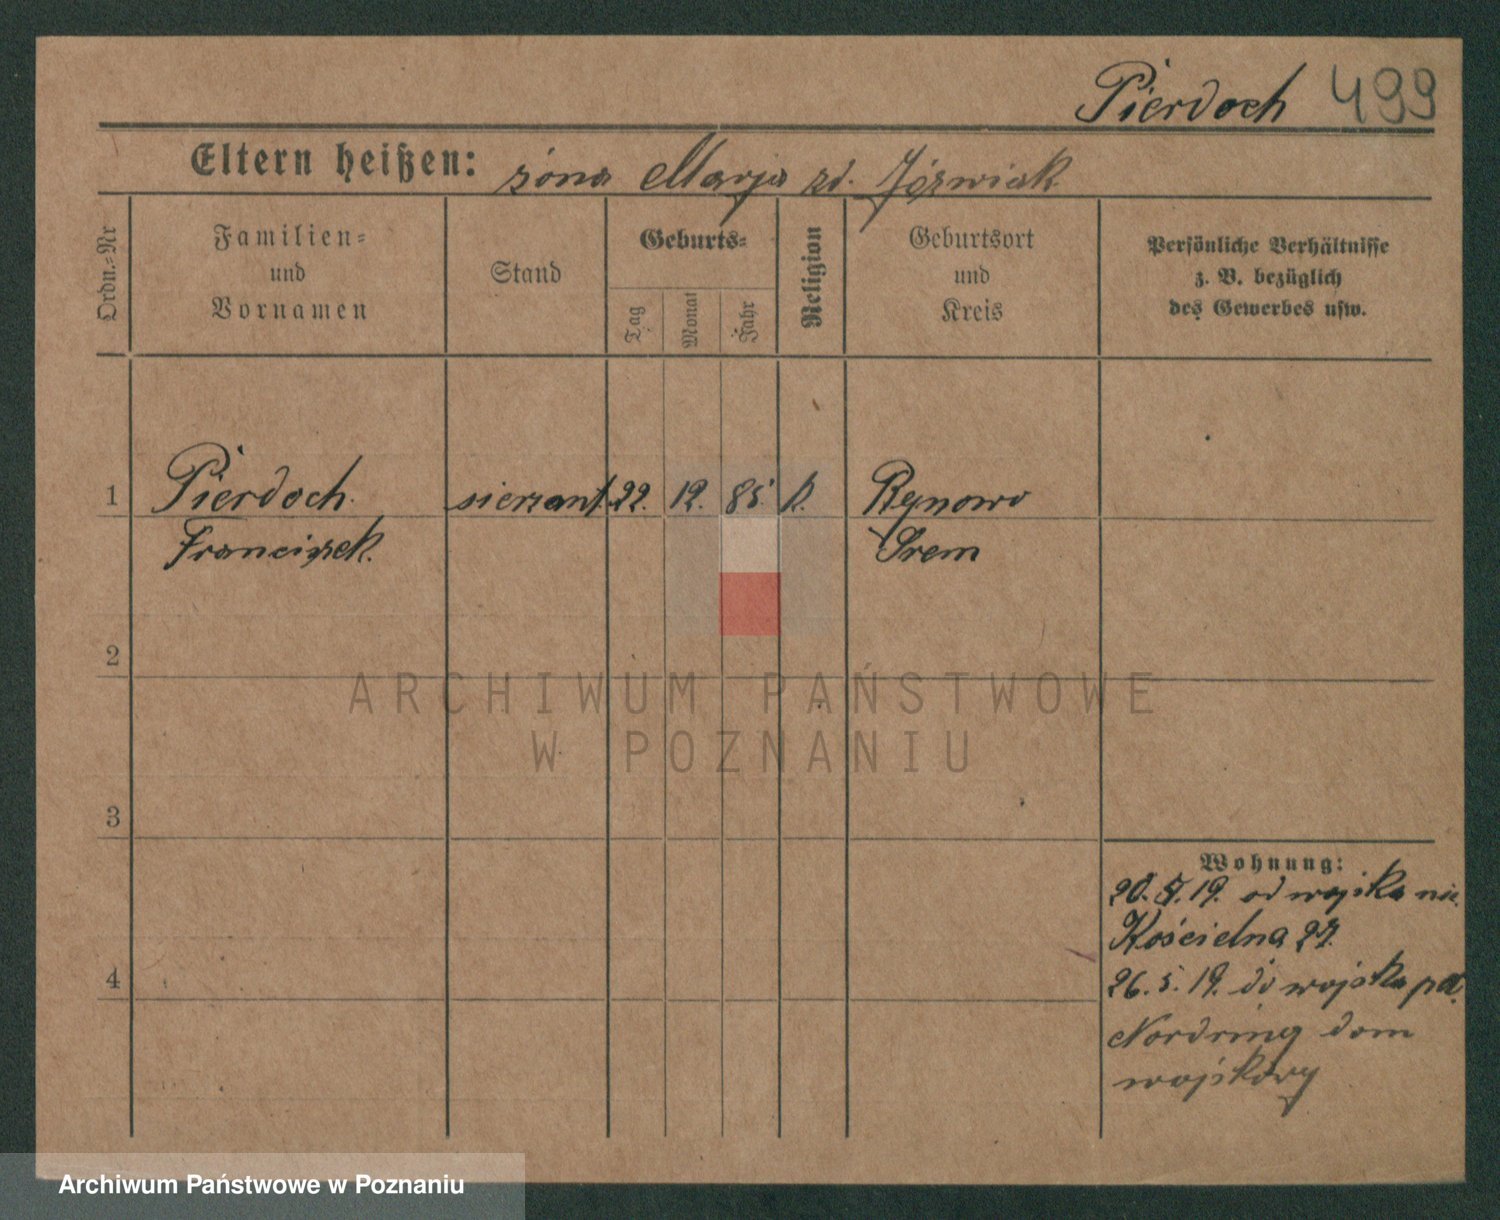 Pierdoch 499
Eltern heißen: żona Marja zd. Jóźwiak
Ordn.-Nr
Familien-
und
Vornamen
Stand
Geburts-
Tag
Monat
Jahr
Religion
Geburtsort
und
Kreis
Persönliche Verhältnisse
z. B. bezüglich
des Gewerbes usw.
1 Pierdoch sierżant 22. 12. 85. k.
Franciszek
Śrem
2
3
4
Wohnung:
19. od wojska
Kościelna 27.
26. 5. 19. do wojska
Nordring dom
wojskowy
ARCHIWUM PAŃSTWOWE
W POZNANIU
Archiwum Państwowe w Poznaniu